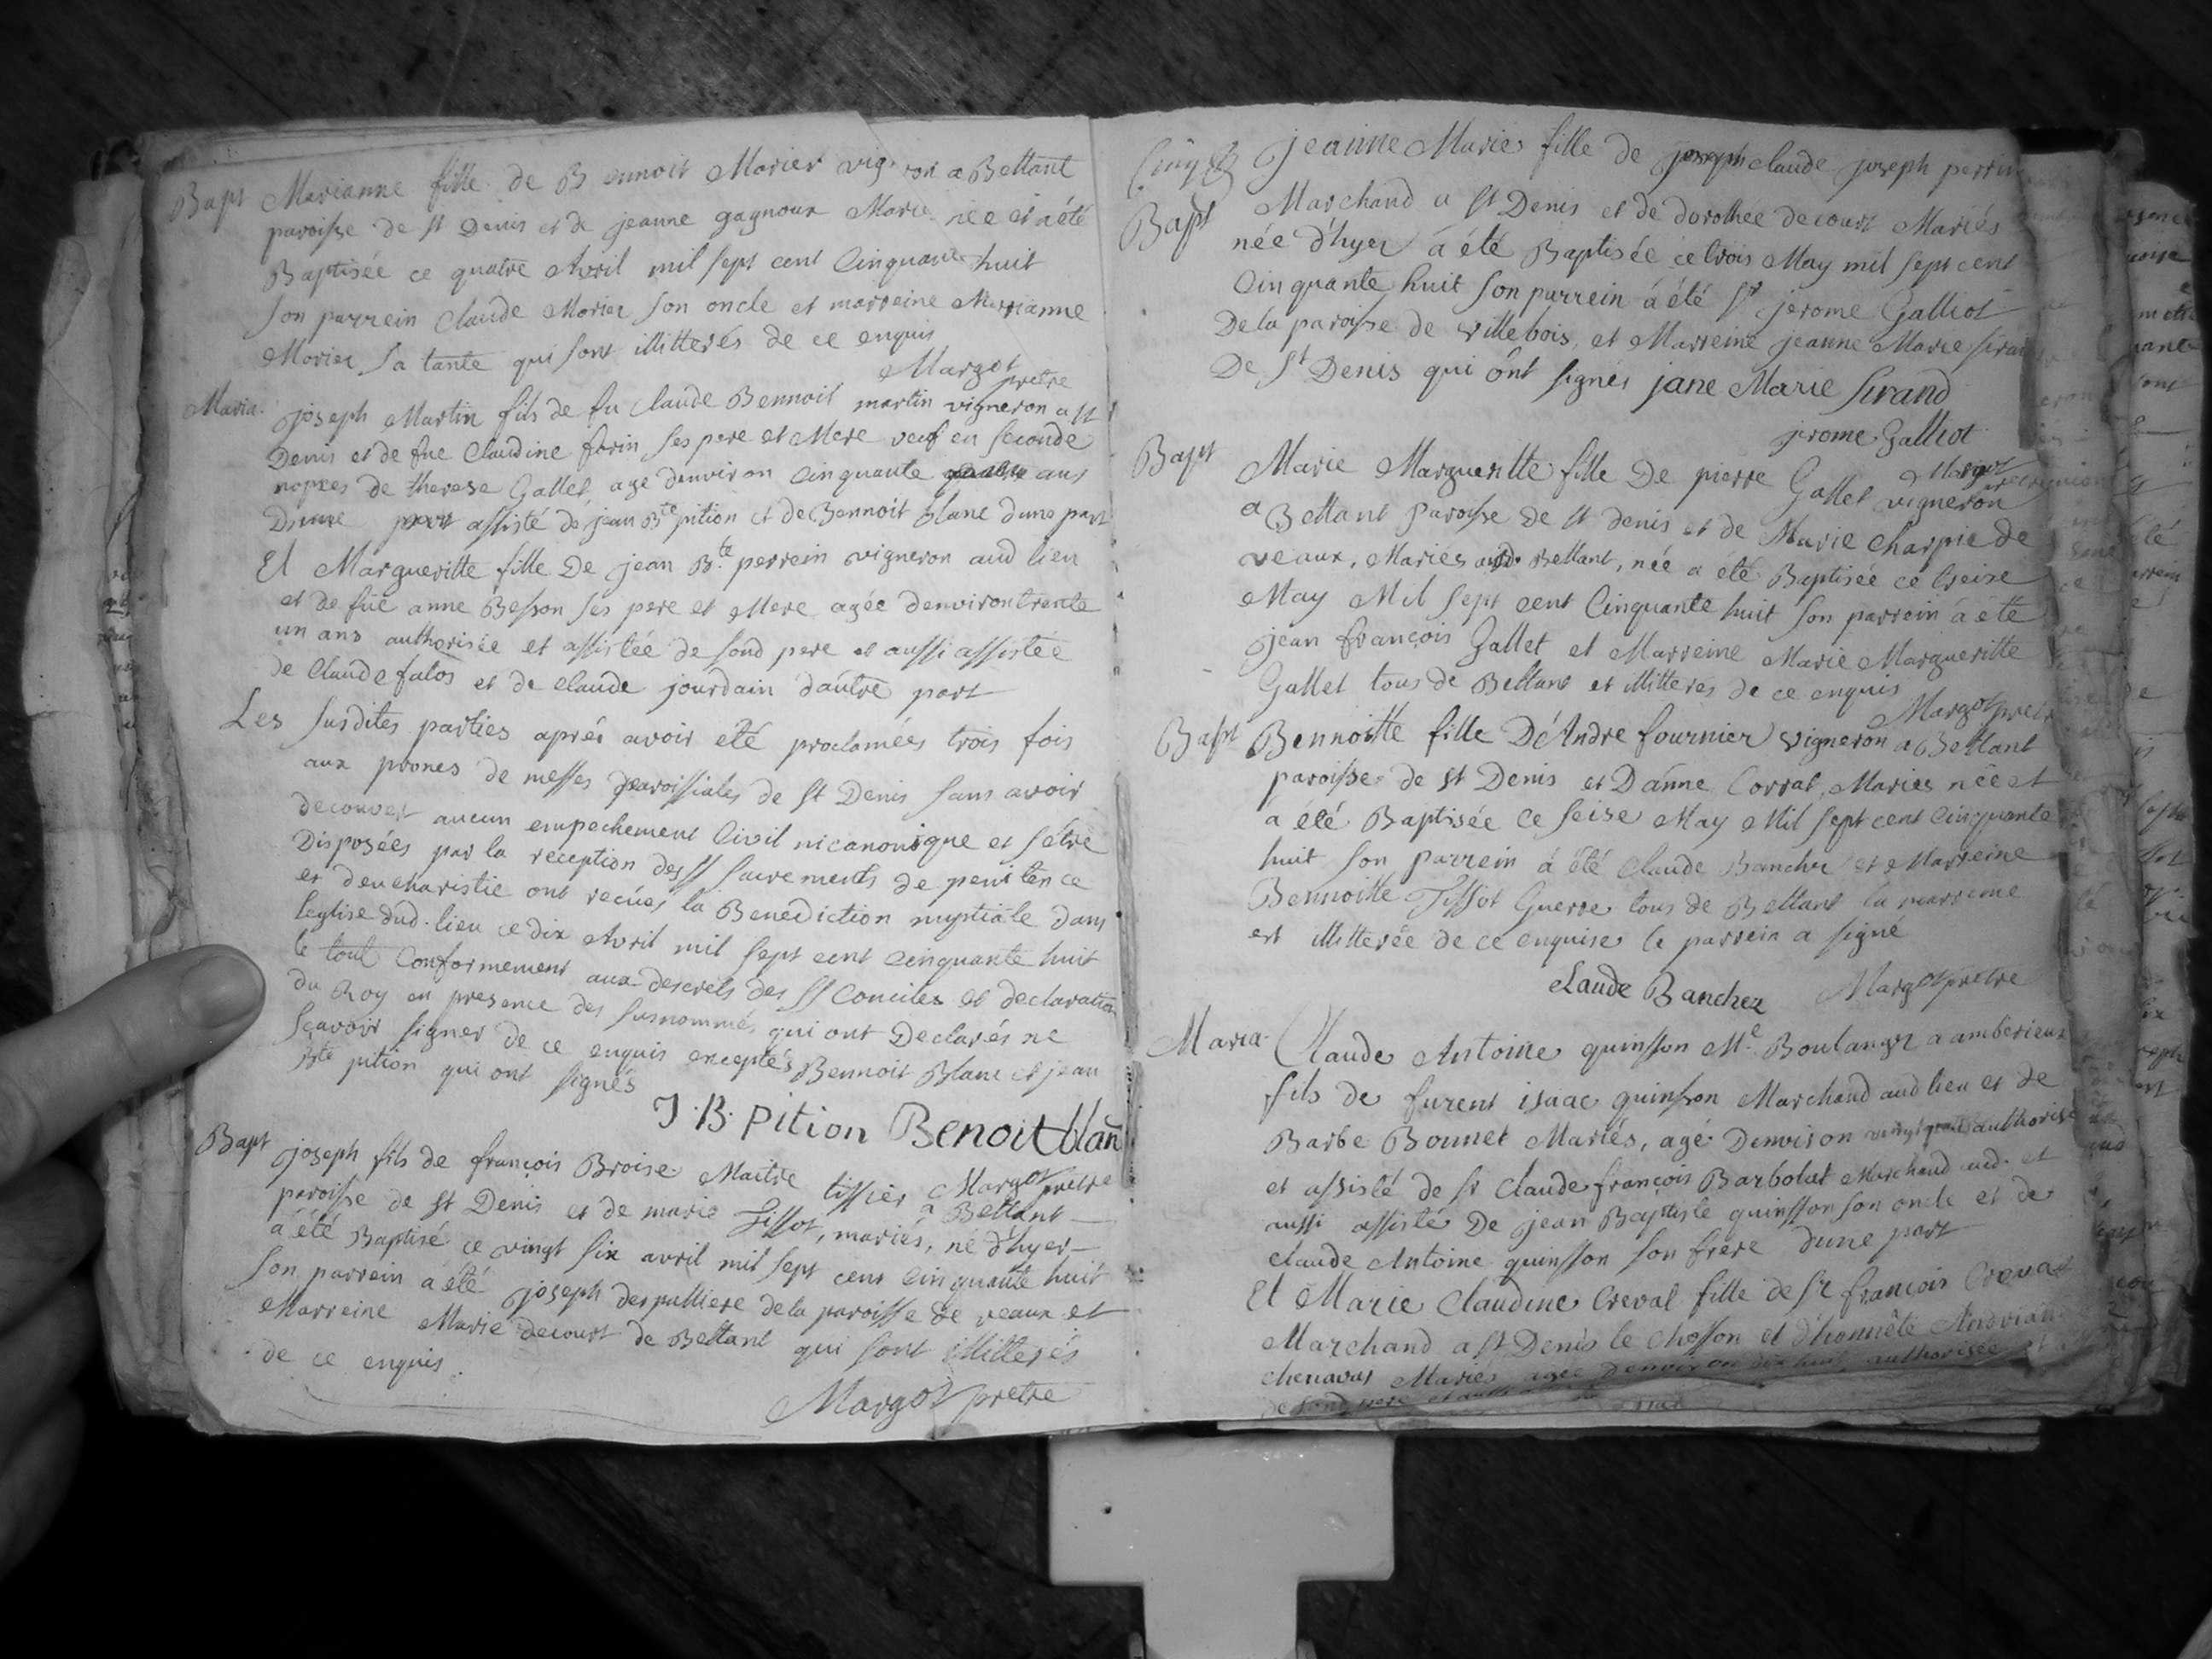 Bapt Marianne fille de Bennoit Morier vigneron a Bettant
paroisse de st Denis et de jeanne gagnoux Marie née et a été
Baptisée ce quatre Avril mil sept cent Cinquante huit
son parrein Claude Morier son oncle et marreine Marianne
Morier sa tante qui sont illitterés de ce enquis
Margot pretre
Maria. joseph Martin fils de fu Claude Bennoit martin vigneron a st
Denis et de fue Claudine forin ses pere et Mere veuf en seconde
nopces de therese Gallet, age denviron Cinquante ans
assisté de jean Bte pition et de Bennoit blanc dune part
Et Margueritte fille De jean Bte perrein vigneron aud lieu
et de füe anne Besson ses pere et Mere agée denviron trente
un ans authorisée et assistée de sond pere et aussi assistée
de Claude falos et de Claude jourdain dautre part
Les susdites parties aprés avoir eté proclamées trois fois
aux prones de messes paroissiales de st Denis sans avoir
decouvert aucun empechement Civil ni canonique et sétre
Disposées par la reception des SS sacrements de penitence
et deucharistie ont recües la Benediction nuptiale dans
leglise dud. lieu ce dix Avril mil sept cent cinquante huit
le tout Conformement aux descrets des SS Conciles et declaration
du Roy en presence des susnommés qui ont Declarés ne
sçavoir signer de ce enquis exceptés Bennoit Blanc et jean
Bte pition qui ont signés
J. B. Pition Benoit blan
Margot pretre
Bapt joseph fils de françois Broise Maitre tissier a Bettant
paroisse de st Denis et de marie Tissot, mariés, né d'hyer
à été Baptisé ce vingt six avril mil sept cent Cinquante huit
son parrein a été joseph despalliere de la paroisse de veaux et
Marreine Marie decourt de Bettant qui sont illitterés
de ce enquis.
Margot pretre
jeanne Marie fille de claude joseph perrin
Bapt Marchand a st Denis et de dorothée decourt Mariés
née d'hyer à été Baptisée ce trois May mil sept cent
Cinquante huit son parrein à été sr jerome Galliot
De la paroisse de villebois, et Marreine jeanne Marie sirand
De st Denis qui ont signés jane Marie Sirand
jrome Galliot
Margot
Bapt Marie Margueritte fille De pierre Gallet vigneron
a Bettant paroisse De st denis et de Marie Charpie de
veaux, Mariés aud. Bettant, née a été Baptisée ce treise
May Mil sept cent Cinquante huit son parrein à été
jean françois Gallet et Marreine Marie Margueritte
Gallet tous de Bettant et illitterés de ce enquis
Margot pretre
Bapt Bennoitte fille D'Andre fournier vigneron a Bettant
paroisse de st Denis et D'anne Corrat, Mariés née et
à été Baptisée ce seise May Mil sept cent Cinquante
huit son parrein à été Claude Bancher et Marreine
Bennoitte Tissot Guerre tous de Bettant la marreine
est illitterée de ce enquise le parrein a signé
Claude Bancher Margot pretre
Maria. Claude Antoine quinsson Me Boulanger a amberieux
fils de furent isaac quinsson Marchand aud lieu et de
Barbe Bonnet Mariés, agé Denviron authorisé
et assisté de sr Claude françois Barbolat Marchand aud. et
aussi assisté De jean Baptiste quinsson son oncle et de
Claude Antoine quinsson son frere dune part
Et Marie Claudine Creval fille de sr françois Creval
Marchand a st Denis le Chosson et d'honnête Andrian
chenavas Mariés agée Denviron dix huit authorisée et
de sond pere et